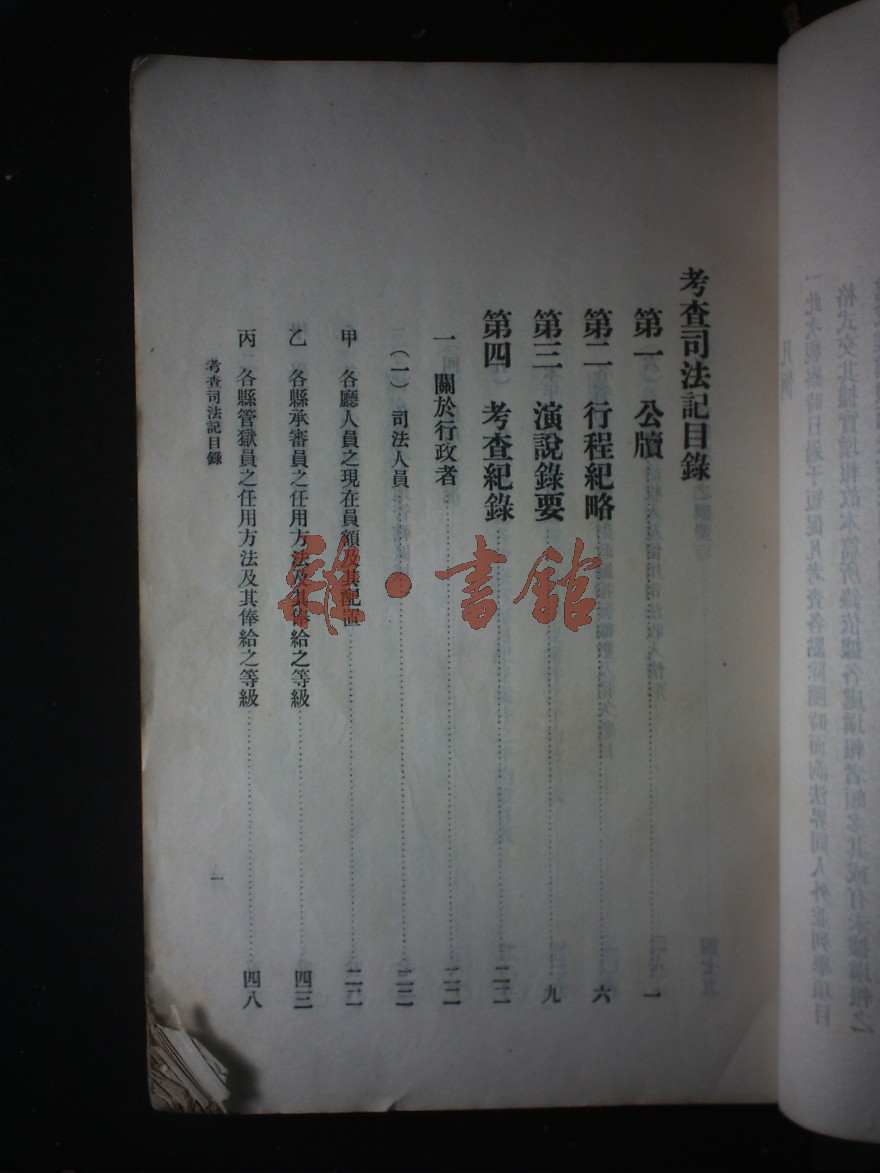 考查司法記目錄
第一 公牘……一
第二 行程紀略……六
第三 演說錄要……九
第四 考查紀錄……二二
一 關於行政者……二二
(一) 司法人員……二二
甲 各廳人員之現在員額及其配置……二二
乙 各縣承審員之任用方法及其俸給之等級……四三
丙 各縣管獄員之任用方法及其俸給之等級……四八
考查司法記目錄
一
雜·書館